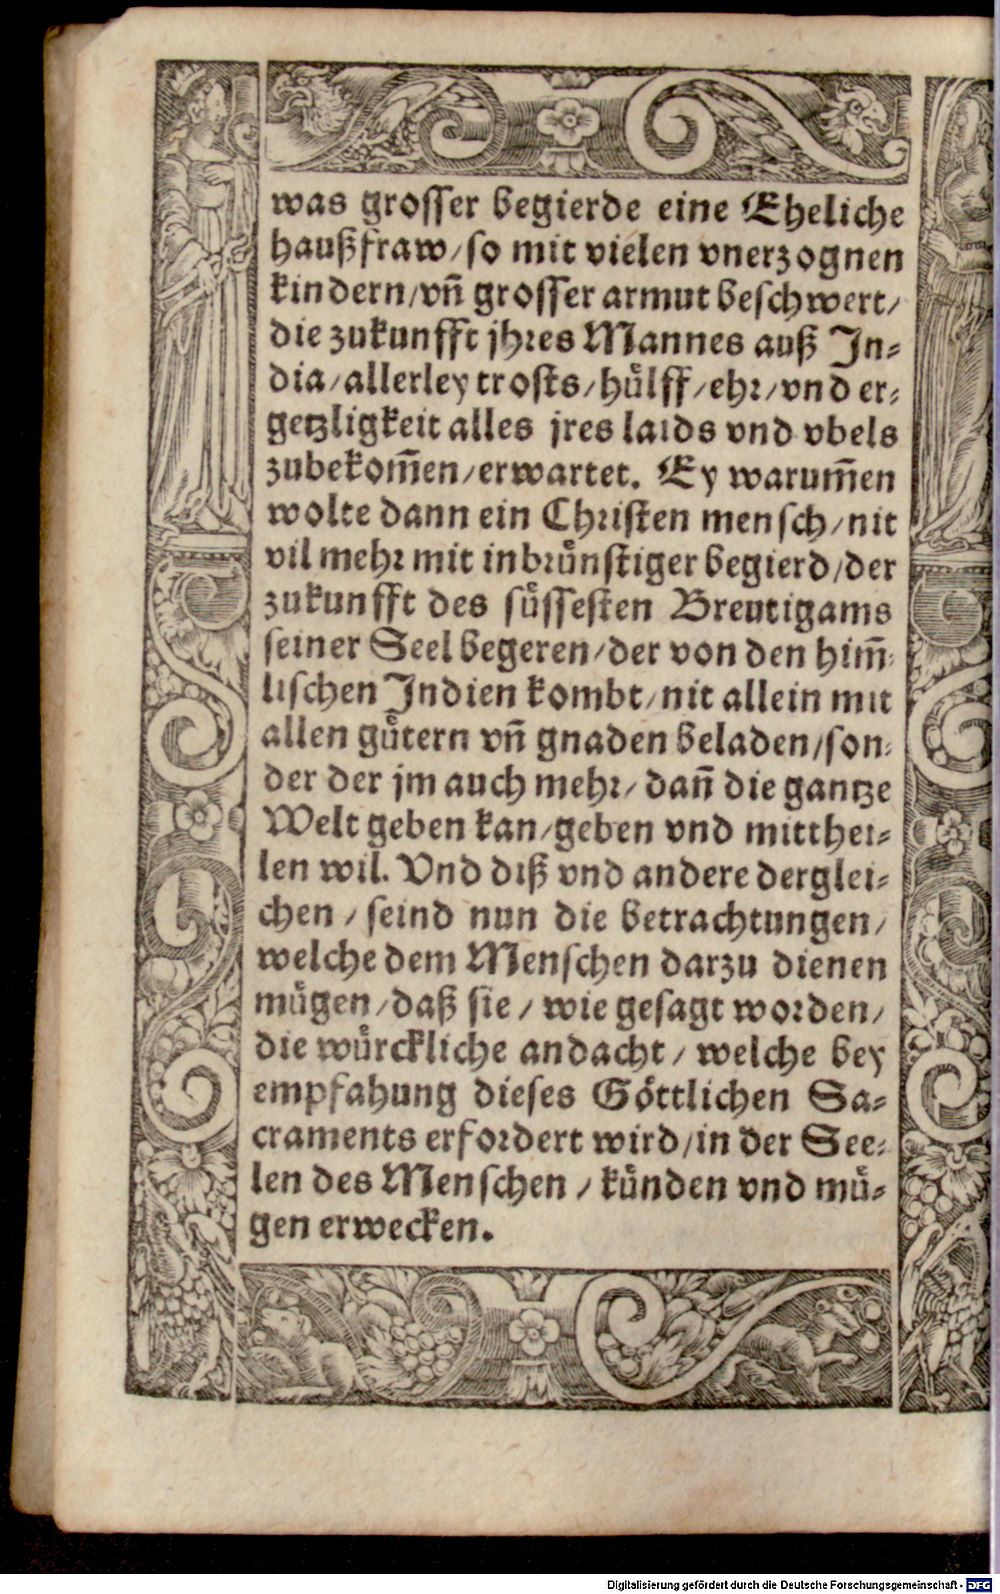 was grosser begierde eine Eheliche
haußfraw/so mit vielen vnerzognen
kindern/vn̄ grosser armut beschwert/
die zukunfft jhres Mannes auß In⸗
dia/allerley trosts/huͤlff/ehr/vnd er⸗
getzligkeit alles jres laids vnd vbels
zubekom̄en/erwartet. Ey warum̄en
wolte dann ein Christen mensch/nit
vil mehr mit inbruͤnstiger begierd/der
zukunfft des suͤssesten Breutigams
seiner Seel begeren/der von den him̄⸗
lischen Indien kombt/nit allein mit
allen guͤtern vn̄ gnaden beladen/son⸗
der der jm auch mehr/dan̄ die gantze
Welt geben kan/geben vnd mitthei⸗
len wil. Vnd diß vnd andere derglei⸗
chen/seind nun die betrachtungen/
welche dem Menschen darzu dienen
muͤgen/daß sie/wie gesagt worden/
die wuͤrckliche andacht/welche bey
empfahung dieses Goͤttlichen Sa⸗
craments erfordert wird/in der See⸗
len des Menschen/kuͤnden vnd muͤ⸗
gen erwecken.
Digitalisierung gefördert durch die Deutsche Forschungsgemeinschaft - DFG